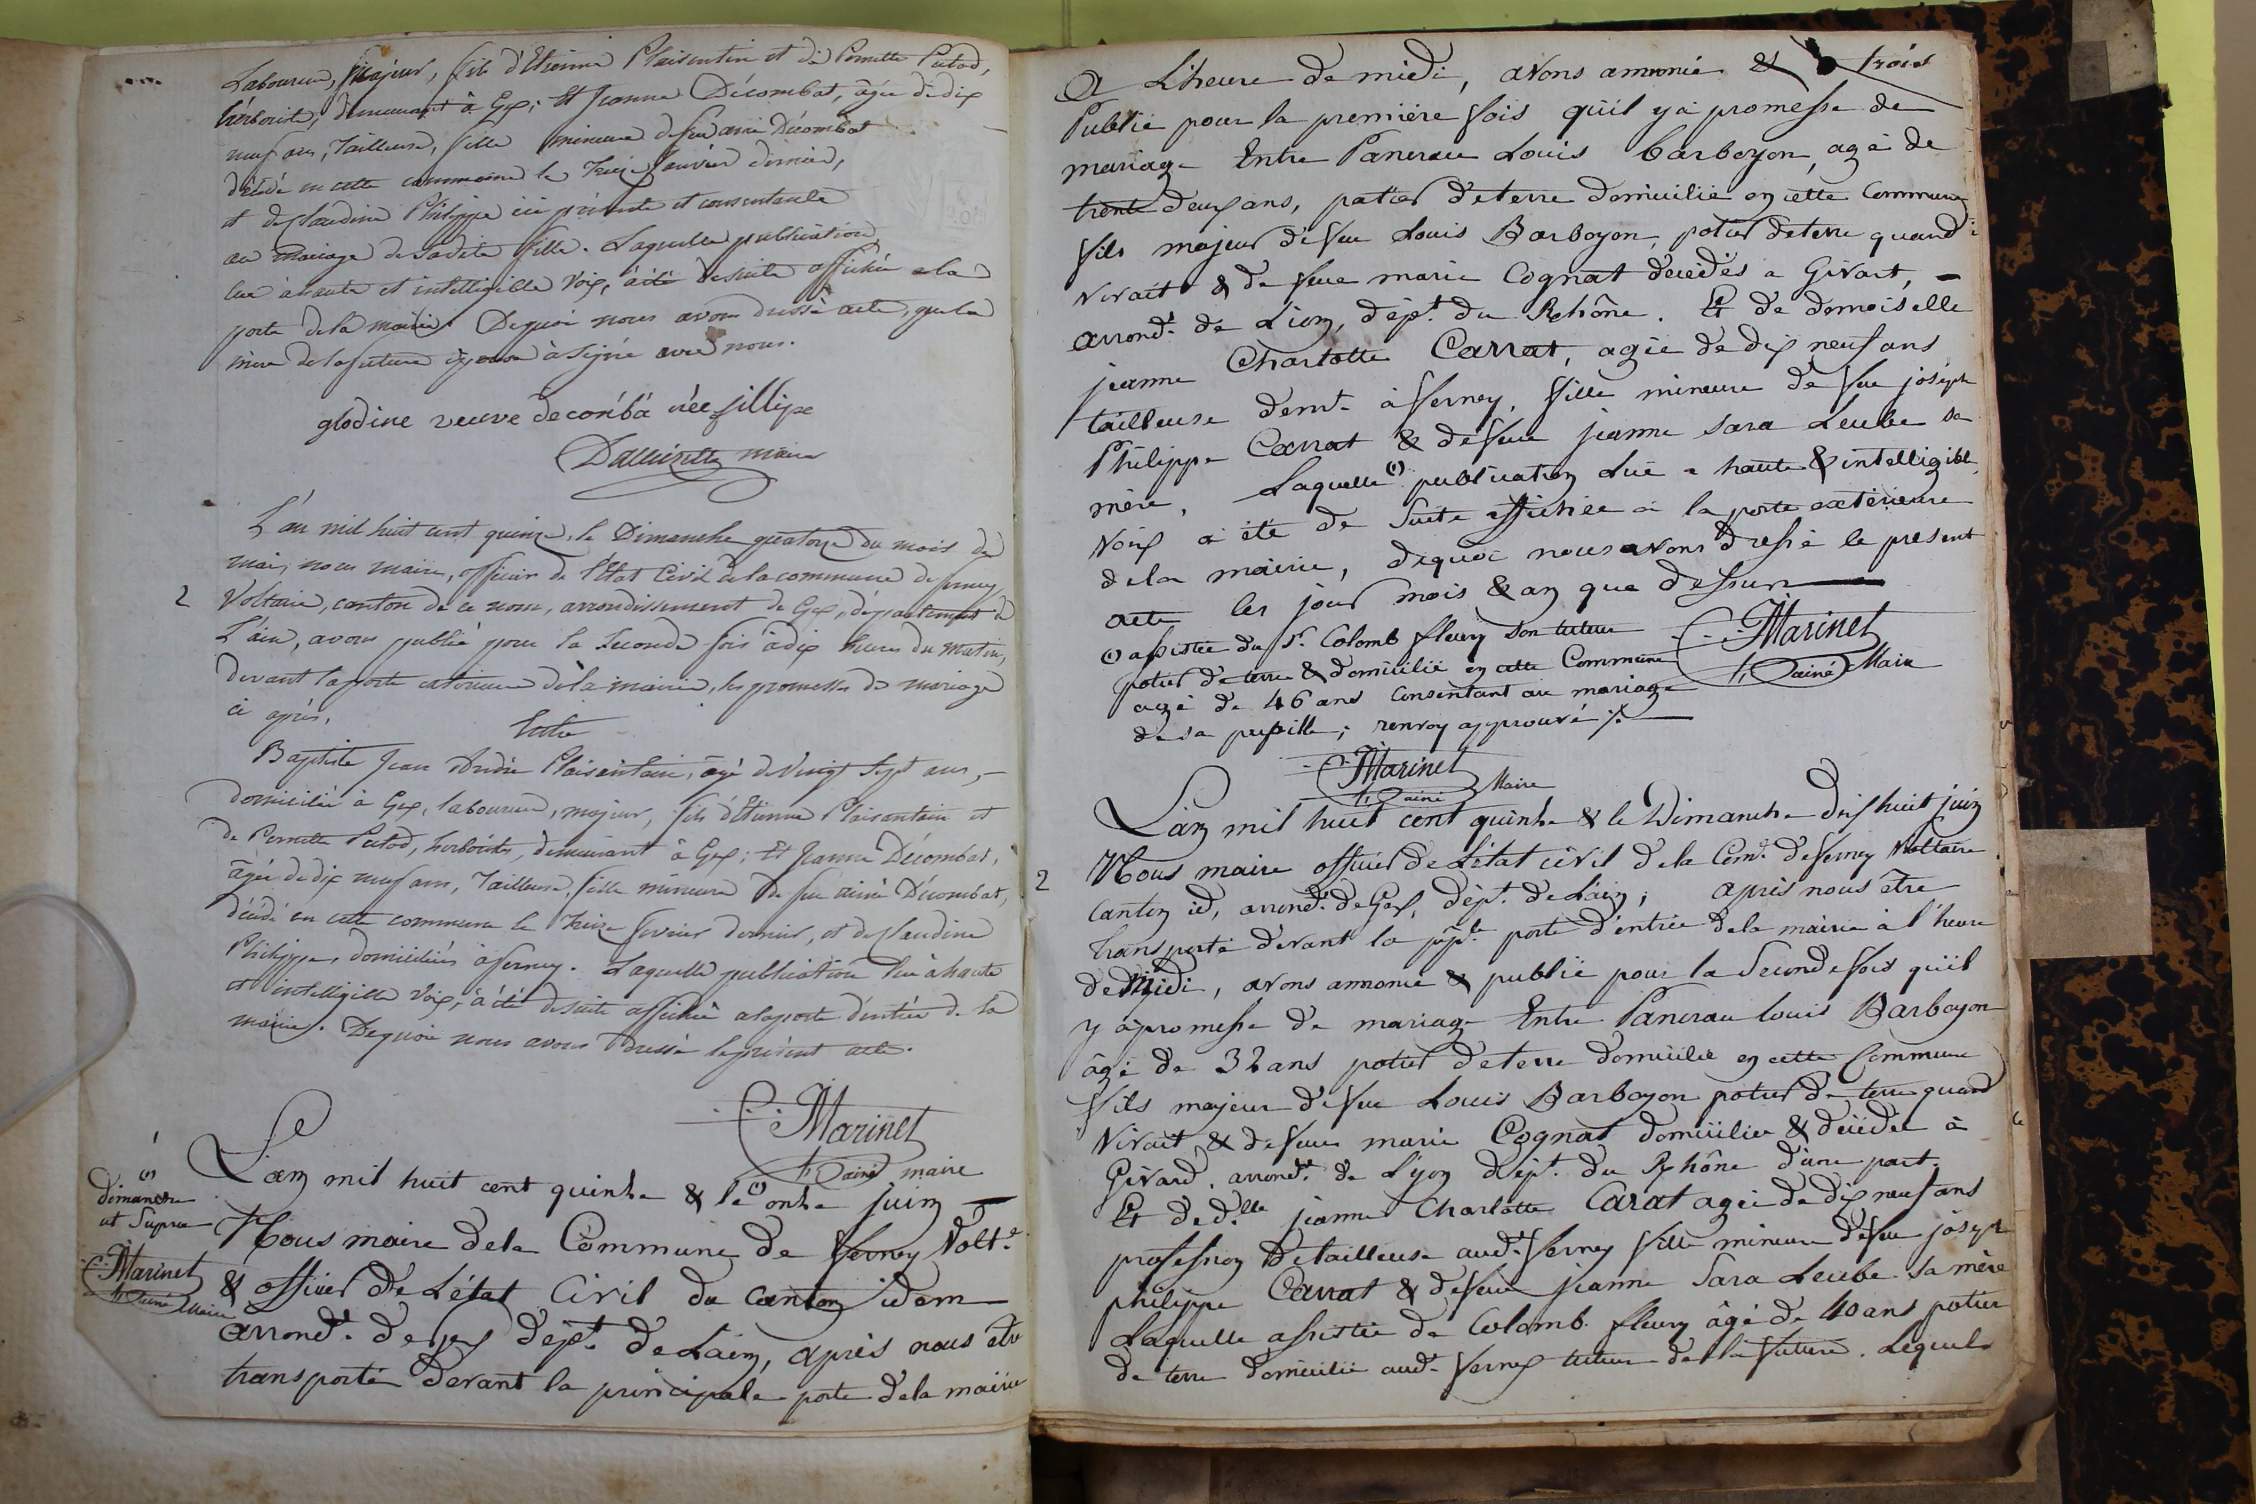 Laboureur, Majeur, fils d'Etienne Plaisentin et de Pernette Patod,
herboriste, demeurant à Gex; Et Jeanne Décombat, âgée de dix
neuf ans, Tailleuse, fille mineure de feu aimé Décombat
décédé en cette commune le treize février dernier,
et de Claudine Philippe ici présente et consentante
au Mariage de sadite fille. Laquelle publication
lue à haute et intelligible voix, à été de suite affichée à la
porte de la mairie. De quoi nous avons dressé acte, que la
mère de la future épouse à signé avec nous.
glodine veuve deconba née fillipe
maire
L'an mil huit cent quinze, le Dimanche quatorze du mois de
mai, nous maire, officier de l'état Civil de la commune de ferney
2 Voltaire, canton de ce nom, arrondissement de Gex, département de
L'ain, avons publié pour la seconde fois à dix heures du matin,
devant la porte extérieure de la mairie, les promesses de mariage
ci après,
Entre
Baptiste Jean André Plaisantain, âgé de vingt sept ans,
domicilié à Gex, laboureur, majeur, fils d'Etienne Plaisantain et
de Pernette Patod, herboriste, demeurant à Gex; Et Jeanne Décombat,
âgée de dix neuf ans, Tailleuse, fille mineure de feu aimé Décombat,
décédé en cette commune le treize février dernier, et de Claudine
Philippe, domiciliés à ferney. Laquelle publication lue à haute
et intelligible voix, à été de suite affichée à la porte d'entrée de la
mairie. De quoi nous avons dressé le présent acte.
C. Marinet
L'ainé maire
1
L'an mil huit cent quinze & le (1) onze juin
(1)
dimanche
ut supra
C. Marinet
L'ainé Maire
Nous maire de la Commune de ferney Volt.e
& officier de L'état Civil du canton idem
arrond.t de gex dép.t de Lain, après nous être
transporté devant la principale porte de la mairie
trois
A L'heure de midi, avons annoncé &
Publié pour la première fois qu'il y a promesse de
mariage Entre Pancrace Louis Barboyon, agé de
trente deux ans, potier de terre domicilié en cette Commune
fils majeur de feu Louis Barboyon, potier de terre quand
vivait & de feue marie Cognat décédés a Givart,
arrond.t de Lion, dép.t du Rhône. Et de demoiselle
jeanne Charlotte Carrat, agée de dix neuf ans
tailleuse dem.t à ferney, fille mineure de feu joseph
Philippe Carrat & de feue jeanne Sara Leube sa
mère, Laquelle (1) publication Lue a haute & intelligible
voix a été de suite affichée a la porte extérieure
de la mairie, de quoi nous avons dressé le présent
acte les jour mois & an que dessus
(1) assistée du S.r Colomb fleury son tuteur
potier de terre & domicilié en cette Commune
agé de 46 ans consentant au mariage
de sa pupille; renvoy approuvé
C. Marinet
L'ainé Maire
C. Marinet
L'ainé Maire
L'an mil huit cent quinze & le Dimanche dix huit juin
Nous maire officier de L'état civil de la Com.e de ferney Voltaire
2 Canton id, arrond.t de Gex, dép.t de Lain; après nous être
transporté devant la pp.le porte d'entrée de la mairie à l'heure
de Midi, avons annoncé & publié pour la seconde fois qu'il
y a promesse de mariage Entre Pancrace louis Barboyon
âgé de 32 ans potier de terre domicilié en cette Commune
fils majeur de feu Louis Barboyon potier de terre quand
vivait & de feue marie Cognat domicilié & décédé à
Givard, arrond.t de Lyon dép.t du Rhône d'une part.
Et de d.lle jeanne Charlotte Carat agée de dix neuf ans
profession de tailleuse aud.t ferney fille mineure de feu joseph
philippe Carrat & de feue jeanne Sara Leube sa mère
Laquelle assistée de Colomb fleury âgé de 40 ans potier
de terre domicilié aud.t ferney tuteur de la future. Lequel